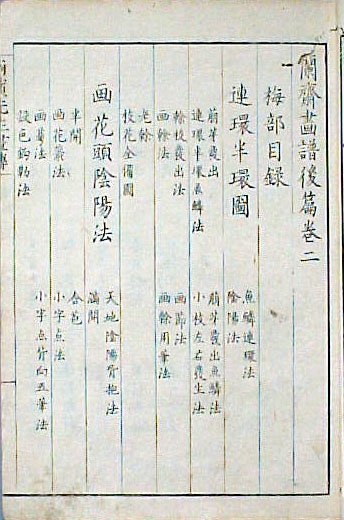 蘭齋畫譜後篇卷二
梅部目録
連環半環圖
魚鱗連環法
陰陽法
萠芽發出
萠芽發出魚鱗法
連環半環魚鱗法
小枝左右發生法
幹枝發出法
画節法
画幹法
画幹用筆法
老幹
枝花全備圖
画花頭陰陽法
天地陰陽背抱法
滿開
半開
含苞
画花蕋法
小字点法
画蕚法
小字点背向五筆法
設色鈎勒法